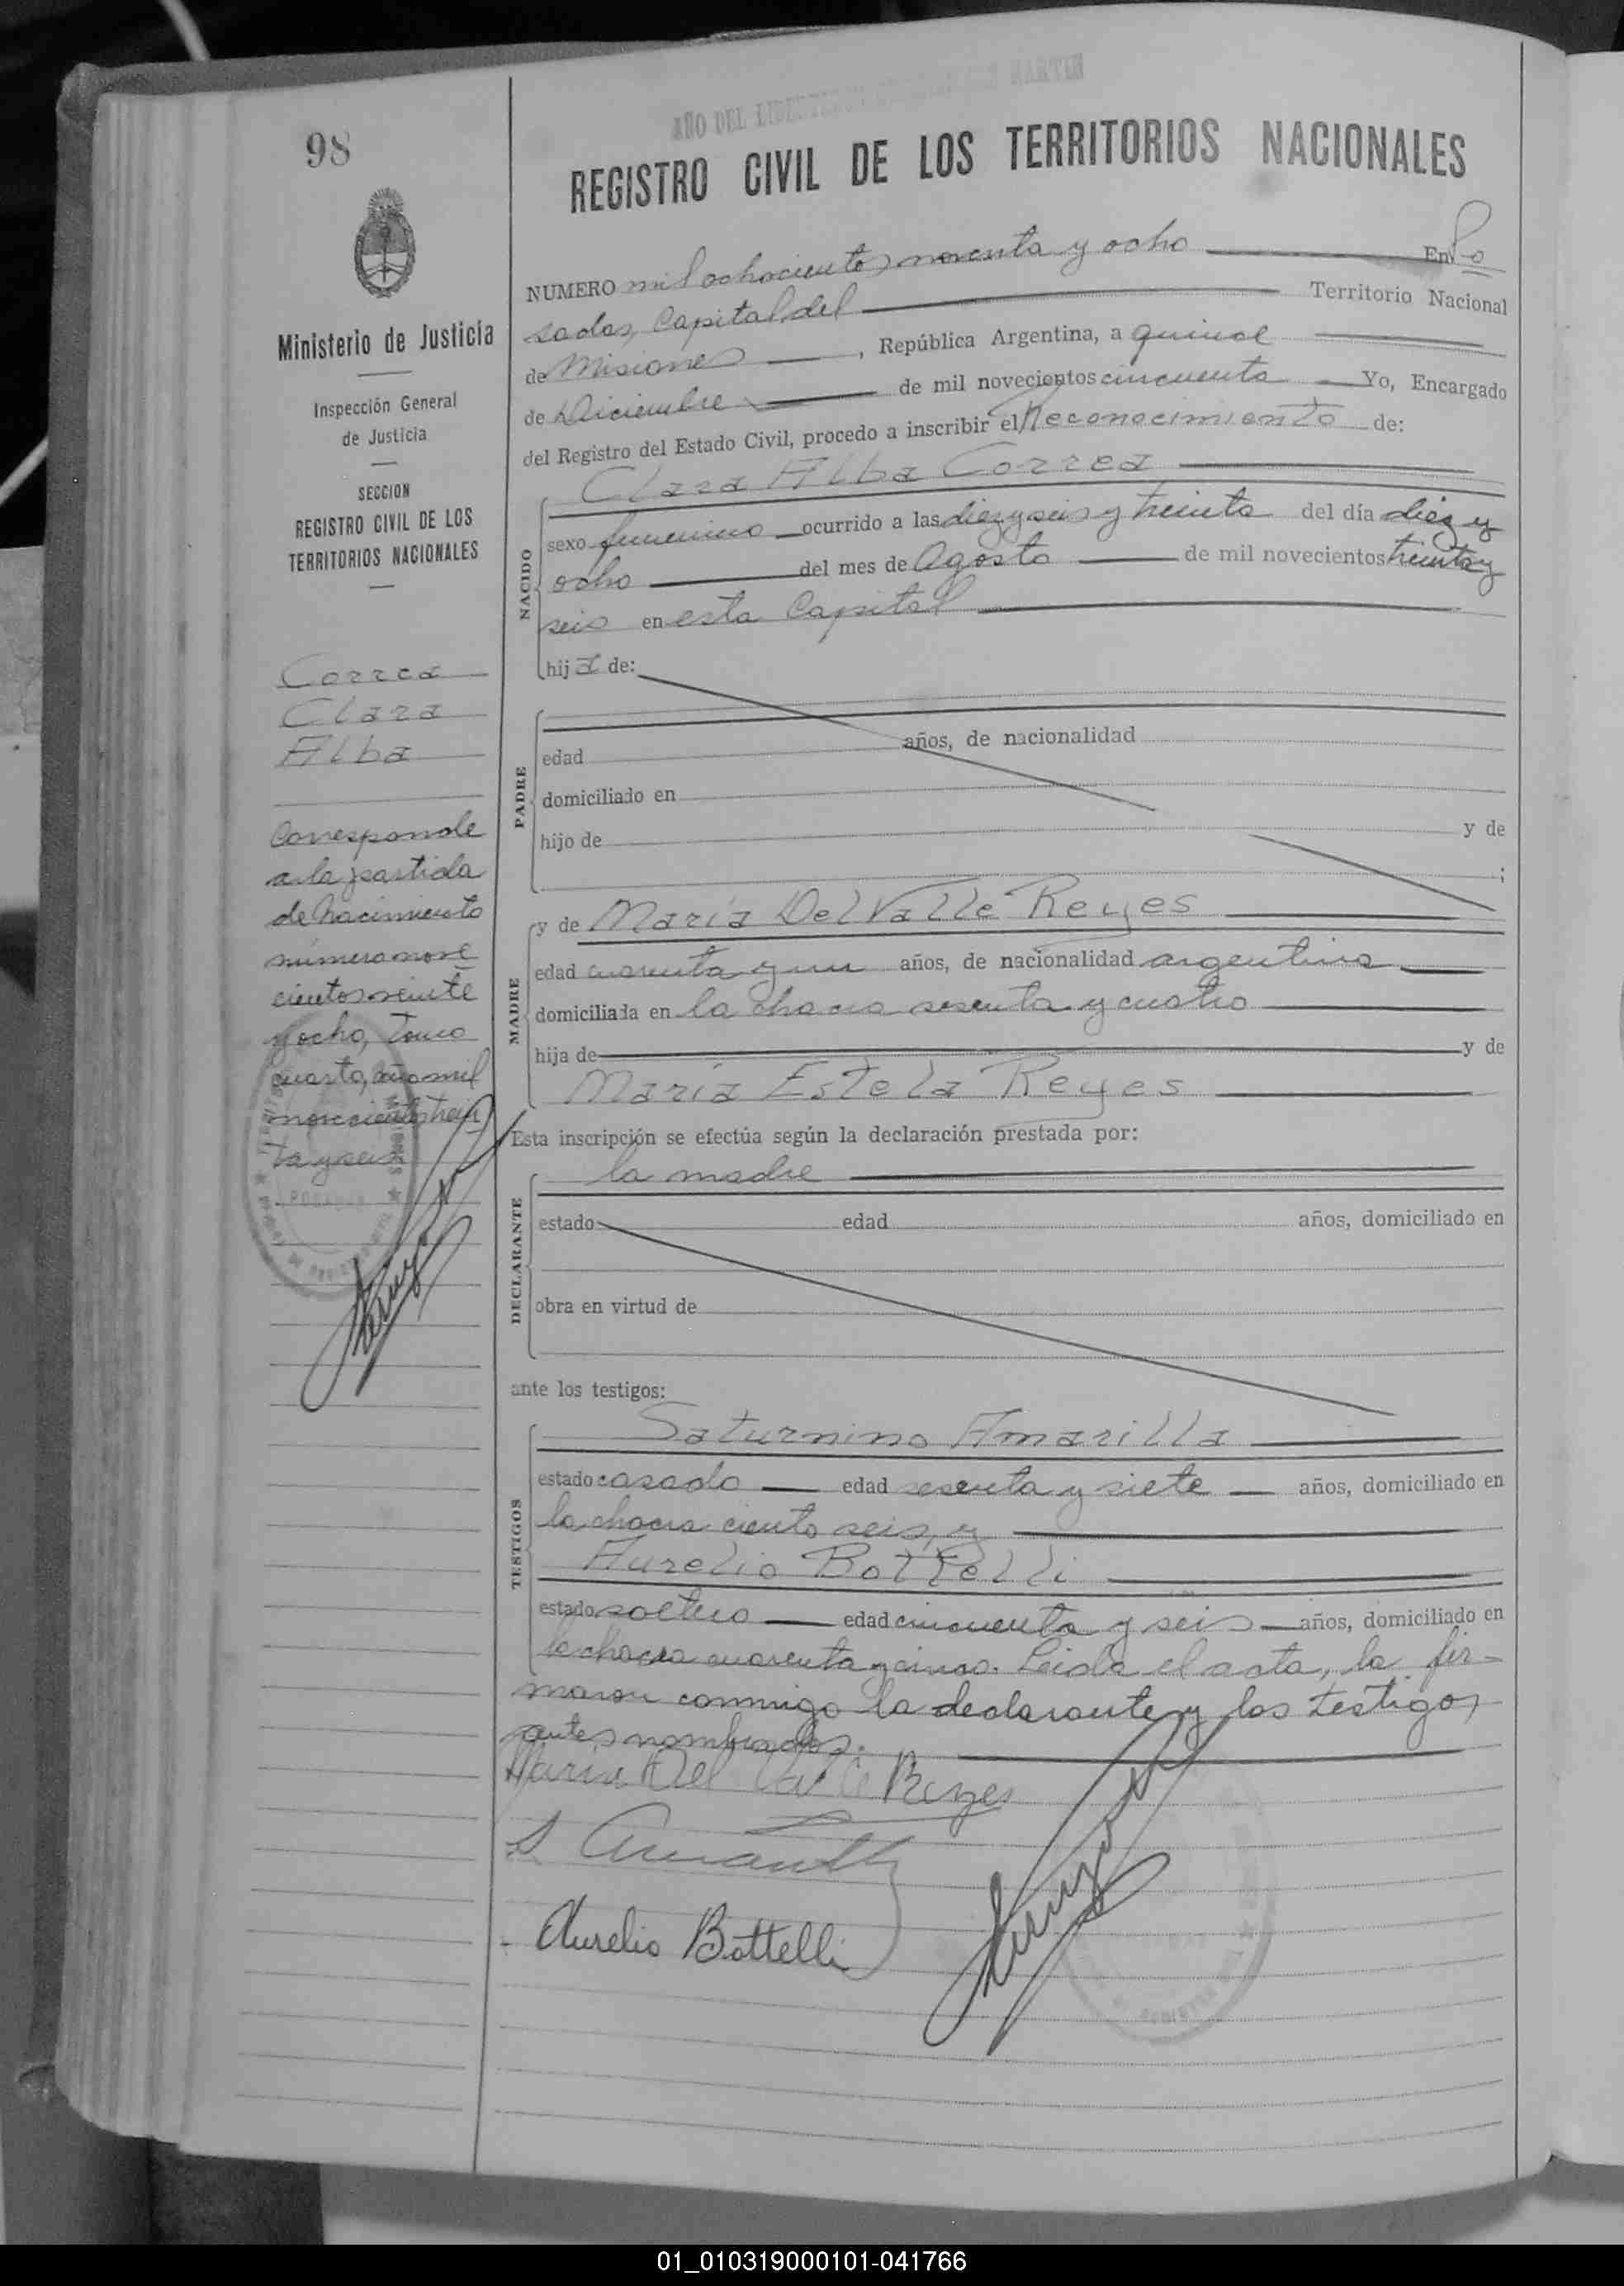 98
AÑO DEL LIBERTADOR MARTIN
REGISTRO CIVIL DE LOS TERRITORIOS NACIONALES
Ministerio de Justicia
Inspección General
de Justicia
SECCION
REGISTRO CIVIL DE LOS
TERRITORIOS NACIONALES
Correa
Clara
Alba
Corresponde
a la partida
de Nacimiento
número nove
cientos veinte
y ocho, tomo
cuarto, año mil
novecientos trein
ta y seis
POSADAS
NUMERO mil ochocientos noventa y ocho En Po
sadas, Capital del Territorio Nacional
de Misiones, República Argentina, a quince
de Diciembre de mil novecientos cincuenta Yo, Encargado
del Registro del Estado Civil, procedo a inscribir el Reconocimiento de:
Clara Alba Correa
NACIDO
sexo femenino ocurrido a las diez y seis y treinta del día diez y
ocho del mes de Agosto de mil novecientos treinta y
seis en esta Capital
hija de:
PADRE
edad años, de nacionalidad
domiciliado en
hijo de y de
;
MADRE
y de María Del Valle Reyes
edad cuarenta y un años, de nacionalidad argentina
domiciliada en la chacra sesenta y cuatro
hija de y de
María Estela Reyes
Esta inscripción se efectúa según la declaración prestada por:
la madre
DECLARANTE
estado edad años, domiciliado en
obra en virtud de
ante los testigos:
Saturnino Amarilla
TESTIGOS
estado casado edad sesenta y siete años, domiciliado en
la chacra ciento seis, y
Aurelio Bottelli
estado soltero edad cincuenta y seis años, domiciliado en
la chacra cuarenta y cinco. Leida el acta, la fir-
maron conmigo la declarante y los testigos
antes nombrados.
María Del Valle Reyes
S. Amarilla
Aurelio Bottelli
01_010319000101-041766